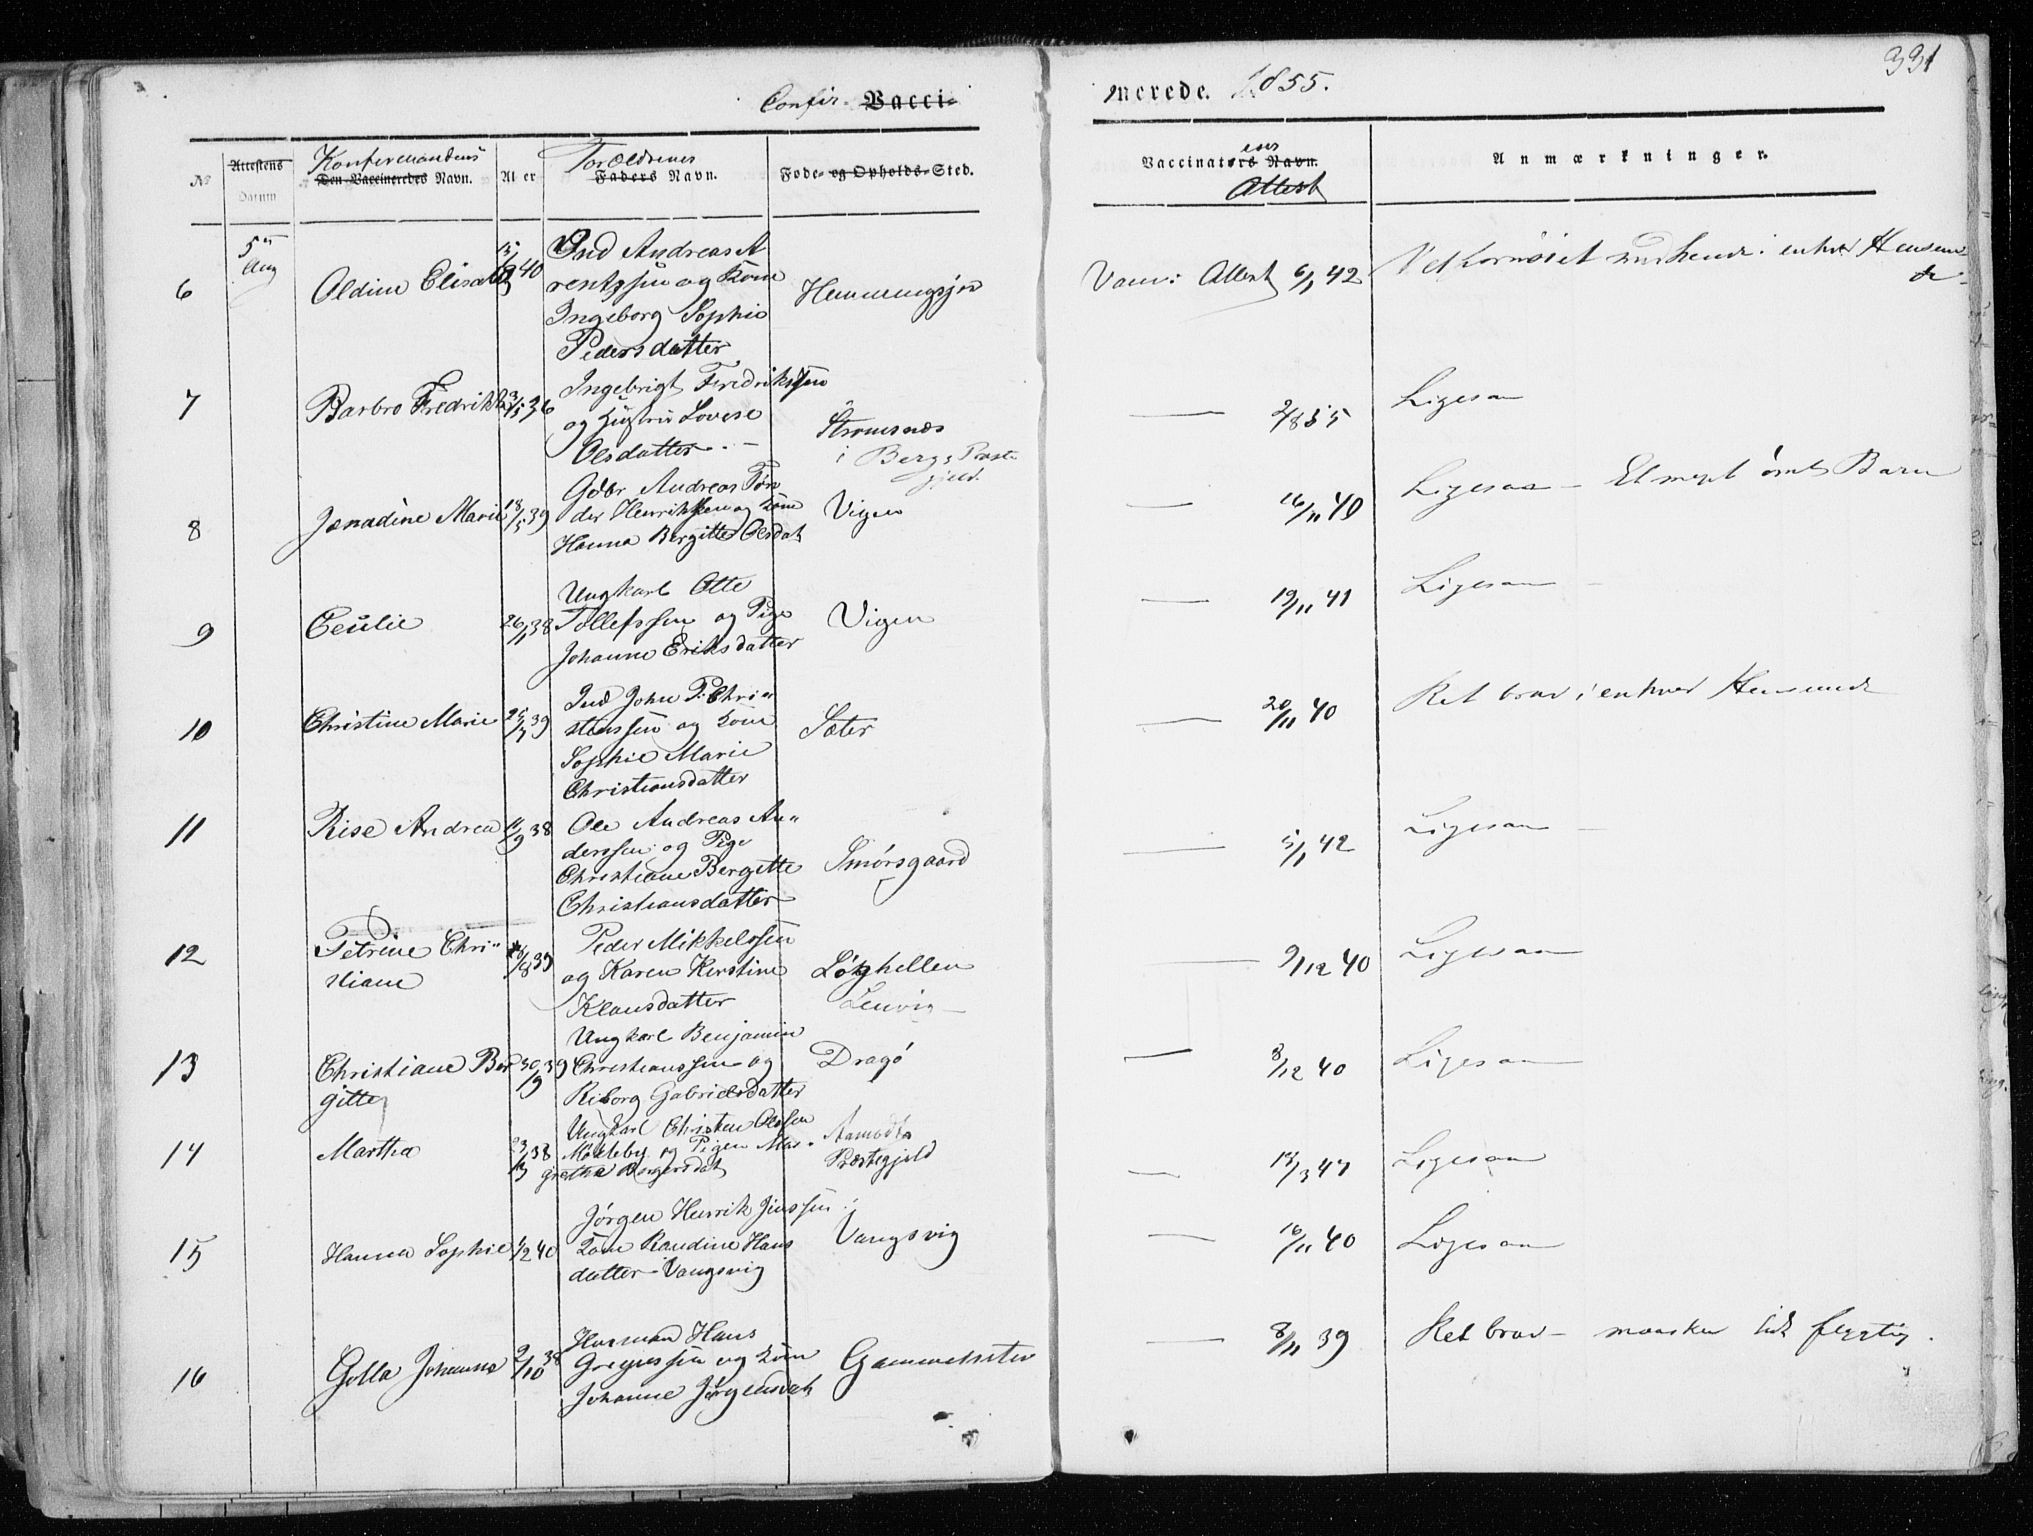 331
Confir- Vacci- nerede. 1855.
No
Attestens Datum
Konfirmandens
Den Vaccineredes Navn.
Al er
Forældrenes
Faders Navn.
Føde- og Opholds-Sted.
Vaccinators Navn.
Attest
Anmærkninger.
5te Aug
6 Oldine Elisabeth 40
Ind Andreas A
rentzsen og Kone
Ingeborg Sophie
Pedersdatter
Hemmingsjor
Vacc: Attest 6/1 42
Vel fornøiet med hende i enhver Henseen
de.
7 Barbro Fredrikke 36
Ingebrigt Fredriksen
og Hustru Lovise
Olsdatter
Strømsnæs
i Bergs Præste
gjeld.
2/8 55
Ligesaa
8 Jenadine Marie 18/5 39
Gdbr Andreas Tøn
der Henriksen og Kone
Hanna Bergitte Olsdat
Vigen
16/11 40
Ligesaa - Et meget ømt Barn
9 Cecilie 26/1 38
Ungkarl Otte
Tollefssen og Pige
Johanne Eriksdatter
Vigen
19/11 41
Ligesaa
10 Christine Marie 39
Ind John P. Chri-
stenssen og Kone
Sophie Marie
Christiansdatter
Sæter
20/11 40
Ret brav i enhver Henseende
11 Rise Andrea 11/9 38
Ole Andreas An-
derssen og Pige
Christiane Bergitte
Christiansdatter
Smørsgaard
5/1 42
Ligesaa
12 Petrine Chri-
stiane 39
Peder Mikkelssen
og Karen Kirstine
Klausdatter
Løghellen
Lenvig
9/12 40
Ligesaa
13 Christiane Ber
gitte 30/9 39
Ungkarl Benjamin
Christianssen og
Riborg Gabrielsdatter
Dragø
8/12 40
Ligesaa
14 Martha 38
Ungkarl Christen Olssen
Mokleby og Pigen Mar-
gretha Asgersdat
Aamodts
Præstegjeld
Ligesaa
15 Hanna Sophie 1/2 40
Jørgen Henrik Jenssen
Kone Randine Hans
datter Vangsvig
Vangsvig
16/11 40
Ligesaa
16 Golla Johanna 9/10 38
Huusmand Hans
Gregussen og Kone
Johanne Jørgensdat
Gammelsæter
8/11 39
Ret brav - maaskee lidt flygtig.